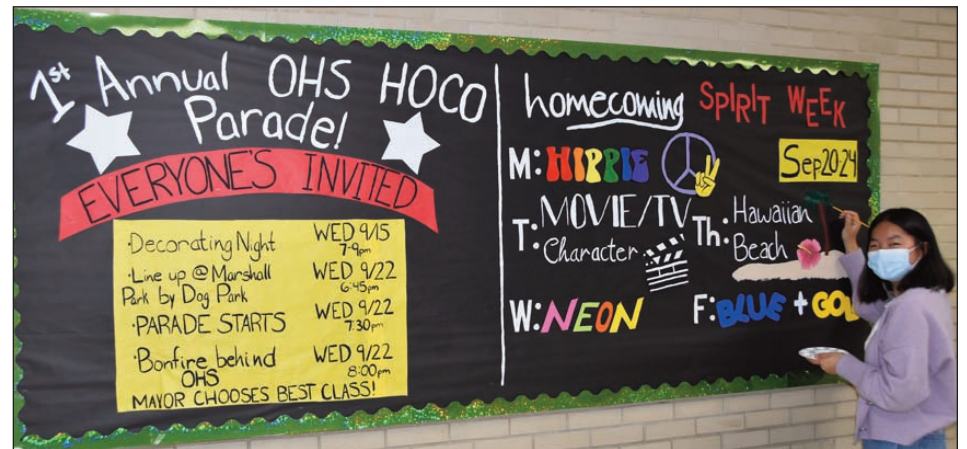 1st Annual OHS HOCO
Parade!
EVERYONE'S INVITED
·Decorating Night WED 9/15
7-9pm
·Line up @ Marshall WED 9/22
Park by Dog Park 6:45pm
·PARADE STARTS WED 9/22
7:30pm
·Bonfire behind WED 9/22
OHS 8:00pm
MAYOR CHOOSES BEST CLASS!
homecoming SPIRIT WEEK
Sep20-24
M: HIPPIE
T: MOVIE/TV
Character
Th: Hawaiian
Beach
W: NEON
F: BLUE + GOL